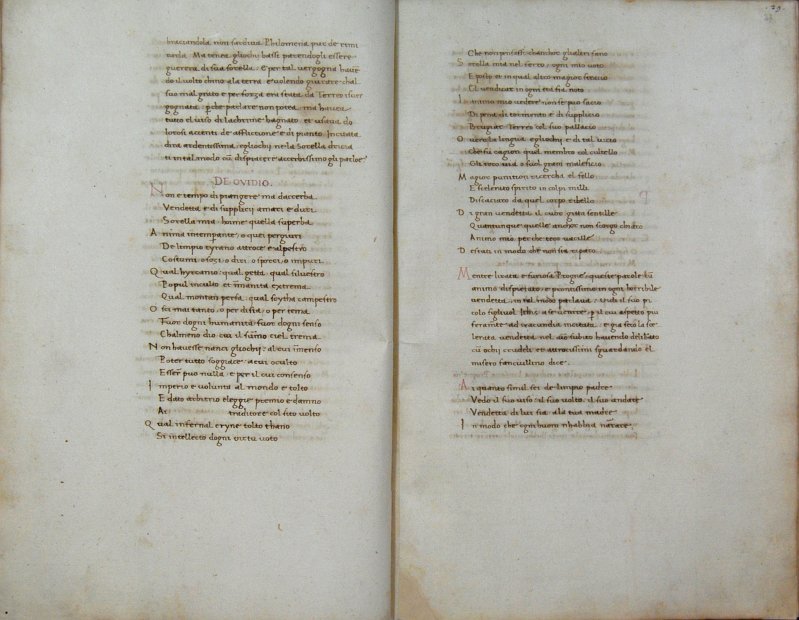 bracciandola non sardiua Philomena pur de rimi
rarla. Ma tenea gliochi bassi parendogli essere
guerera di sua sorella. E per tal uergogna haue
do il uolto chino ala terra e uolendo giurare chal
suo mal grato e per forza era stata da Tereo
gognata: parlare non potea. ma hauea
tutto el uiso di lachrime bagnato. et usaua do
lorosi accenti de afflictione e di pianto. Incitata
dira ardentissima, egliochi ne la sorella driza
ti in tal modo cũ dispiacere acerbissimo gli parloe
DE OVIDIO.
Non e tempo di piangere ma dacerba
Vendetta e di supplicii amari e duri
Sorella mia. hoime quella superba
Anima intemperante. o quei pergiuri
De limpio tyrano atroce e alpestro
Costumi. o sozi. o diri. o sporci. o impuri
Qual hyrcano: qual getta. qual siluestro
Popul inculto et immanita extrema.
Qual montan persa: qual scytha campestro
O sci mai tanto. o per disia. o per tema
Fuor dogni humanita fuor dogni senso
Chalmeno dio cui il sũmo ciel trema
Non hauesse nanci gliochi: al cui ĩmenso
Poter tutto soggiace. a cui oculto
Esser puo nulla. e per il cui consenso
Imperio e uolunta al mondo e tolto
E dato arbitrio eleggie premio e damno
Ac traditore col suo uolto
Qual infernal eryne tolto thano
Si intellecto dogni uirtu uoto
29
Che non potessi. chamboe gualtri fano
Sorella mia nel ferro. ogni mio uoto
E posto et in qual altro magior stracio
El uendicar in ogni eta sia noto
Lanimo mio uedere non se puo sacio
Di pena di tormento e di supplicio
Brugiar Terreo col suo pallacio
O uero la lingua egliochi e di tal uicio
Che fu cagion quel membro col cultello
Gli troncaria o fuol grani maleficio
Magior punition ricercha el fello
E scelerito spirito in colpi milli
Discaciato da quel corpo ribello
Di gran uendetta il cuore grista sentille
Quantunque quelle anchor non scorgo
Animo mio. perche teco uacille
Deserari in modo che non sia ripato.
Mentre lirata e furiosa Progne queste parole cũ
animo dispietato e prontissimo in ogni horribile
uendetta. in tal modo parlaua: uidi il suo pi
colo figliuol Ithis a se uenire. il cui aspetto piu
feramte ad iracundia incitata. e gia fato la sce
lerata uendetta nel suo furato hauendo delibato
cũ ochi crudeli et atrocissimi sguardando el
misero fanciullino dice.
Ai quanto simil sei de limpio padre
Vedo il suo uiso il suo uolto. il suo andare
Vendetta di lui fia ala tua madre
In modo che ognihuom nhabbia narrare.